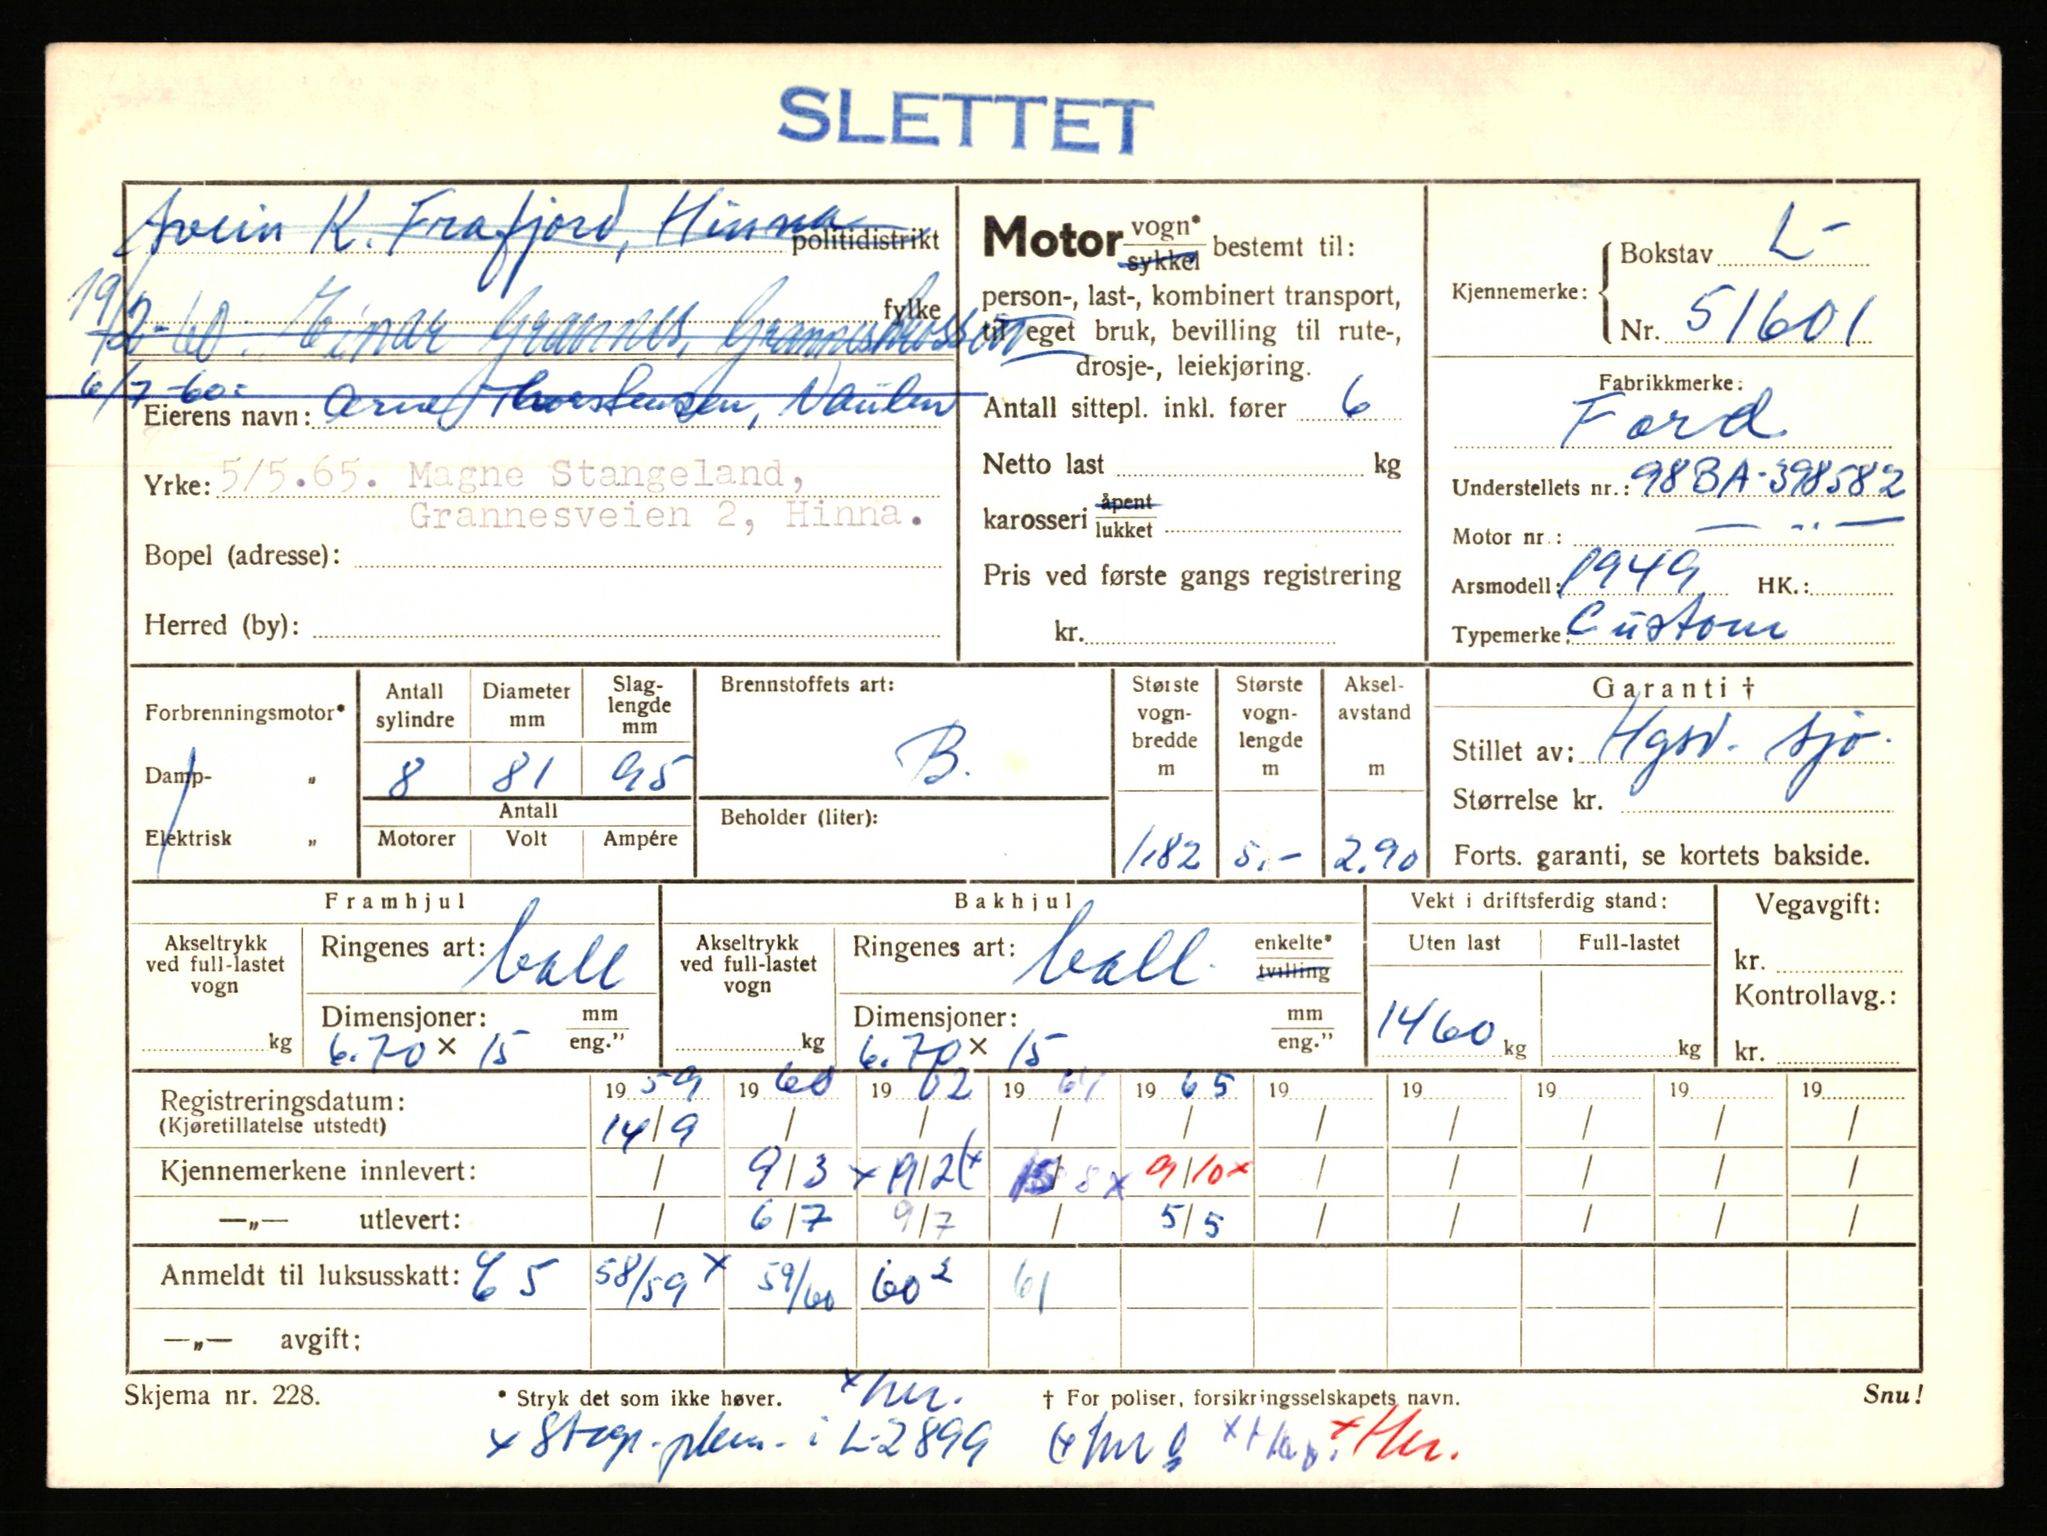 SLETTET
Svein K. Frafjord, Hinna
politidistrikt
19/2-60. Einar Grannes, Grannes
fylke
6/7-60: Arne Thorstensen, Vaulen
Eierens navn:
Yrke: 5/5.65. Magne Stangeland,
Grannesveien 2, Hinna.
Bopel (adresse):
Herred (by):
Motor vogn* sykkel bestemt til:
person-, last-, kombinert transport,
til eget bruk, bevilling til rute-,
drosje-, leiekjøring.
Antall sittepl. inkl. fører 6
Netto last kg
karosseri åpent lukket
Pris ved første gangs registrering
kr.
Kjennemerke: Bokstav L-
Nr. 51601
Fabrikkmerke:
Ford
Understellets nr.: 98BA-398582
Motor nr.: — " —
Arsmodell: 1949 HK.:
Typemerke: Custom
Forbrenningsmotor*
Damp- „
Elektrisk „
Antall sylindre Diameter mm Slaglengde mm
8 81 95
Antall
Motorer Volt Ampére
Brennstoffets art:
B.
Beholder (liter):
Største vogn-bredde m Største vogn-lengde m Aksel-avstand m
1.82 5.- 2.90
Garanti †
Stillet av: Hgsd. sjø.
Størrelse kr.
Forts. garanti, se kortets bakside.
Framhjul
Akseltrykk ved full-lastet vogn kg
Ringenes art: ball
Dimensjoner: mm eng."
6.70 × 15
Bakhjul
Akseltrykk ved full-lastet vogn kg
Ringenes art: ball. enkelte* tvilling
Dimensjoner: mm eng."
6.70 × 15
Vekt i driftsferdig stand:
Uten last Full-lastet
1460 kg kg
Vegavgift:
kr.
Kontrollavg.:
kr.
19 59 19 60 19 62 19 64 19 65 19 19 19 19 19
Registreringsdatum: 14/9 / / / / / / / / /
(Kjøretillatelse utstedt)
Kjennemerkene innlevert: / 9/3 x 19/2 (x 15/8 x 9/10 x / / / / /
—„— utlevert: / 6/7 9/7 / 5/5 / / / / /
Anmeldt til luksusskatt: 65 58/59 x 59/60 60² 61
—„— avgift:
Skjema nr. 228.
* Stryk det som ikke høver.
x hur.
† For poliser, forsikringsselskapets navn.
Snu!
i L-2899